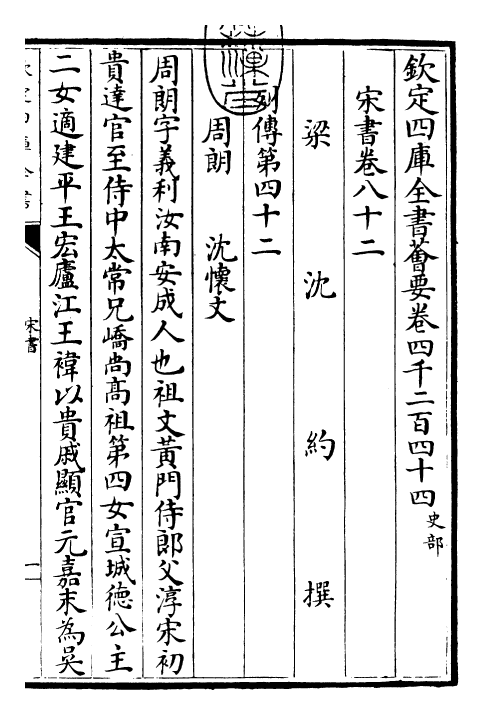 欽定四庫全書薈要卷四千二百四十四史部
宋書卷八十二
梁沈約撰
列傳第四十二
周朗 沈懷文
周朗字義利汝南安成人也祖文黃門侍郎父淳宋初
貴達官至侍中太常兄嶠尚高祖第四女宣城德公主
二女適建平王宏廬江王褘以貴戚顯官元嘉末為吳
宋書
一